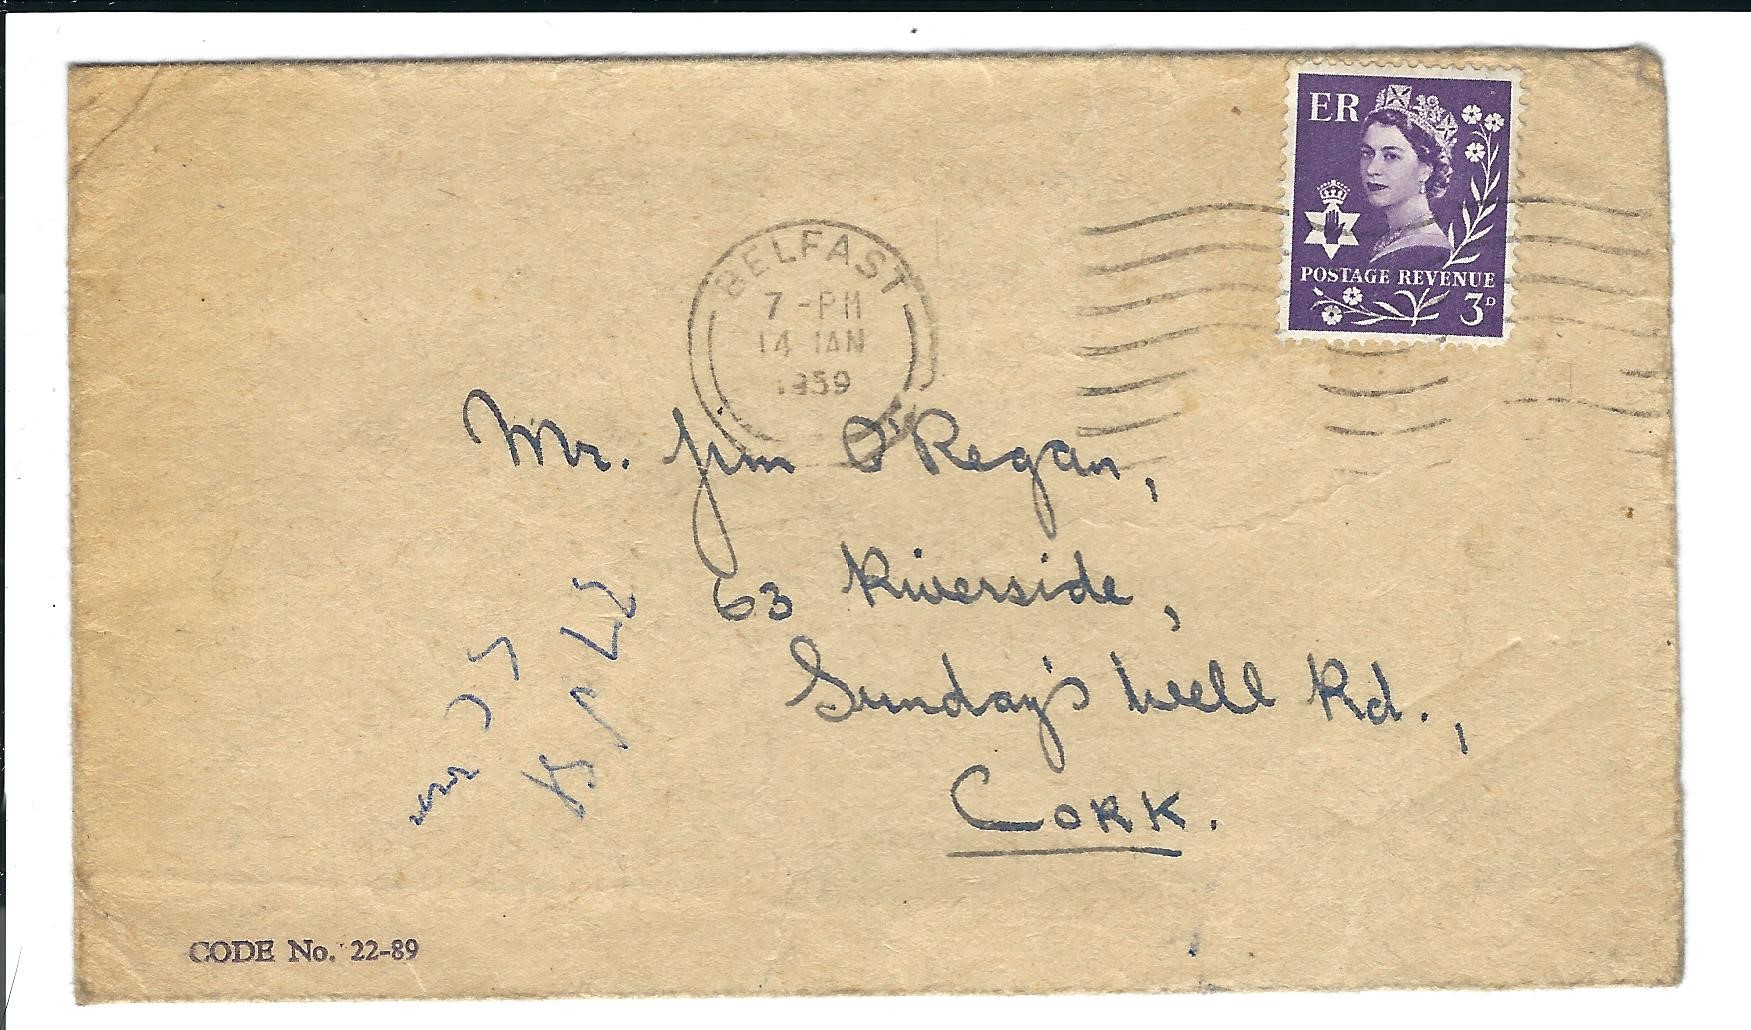 ER
POSTAGE REVENUE
3D
BELFAST
7 -PM
14 JAN
1959
Mr. Jim O'Regan,
63 Riverside,
Sunday's Well Rd.,
CORK.
CODE No. 22-89